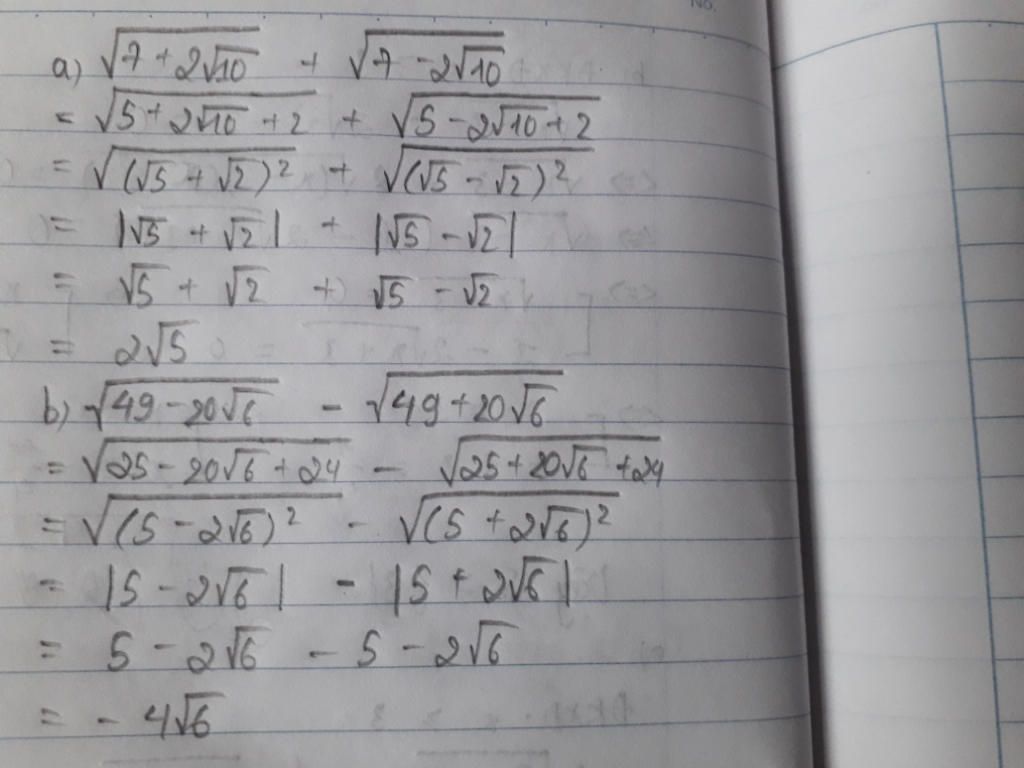 No.
a) √(7 + 2√10) + √(7 - 2√10)
= √(5 + 2√10 + 2) + √(5 - 2√10 + 2)
= √((√5 + √2)²) + √((√5 - √2)²)
= |√5 + √2| + |√5 - √2|
= √5 + √2 + √5 - √2
= 2√5
b) √(49 - 20√6) - √(49 + 20√6)
= √(25 - 20√6 + 24) - √(25 + 20√6 + 24)
= √((5 - 2√6)²) - √((5 + 2√6)²)
= |5 - 2√6| - |5 + 2√6|
= 5 - 2√6 - 5 - 2√6
= - 4√6